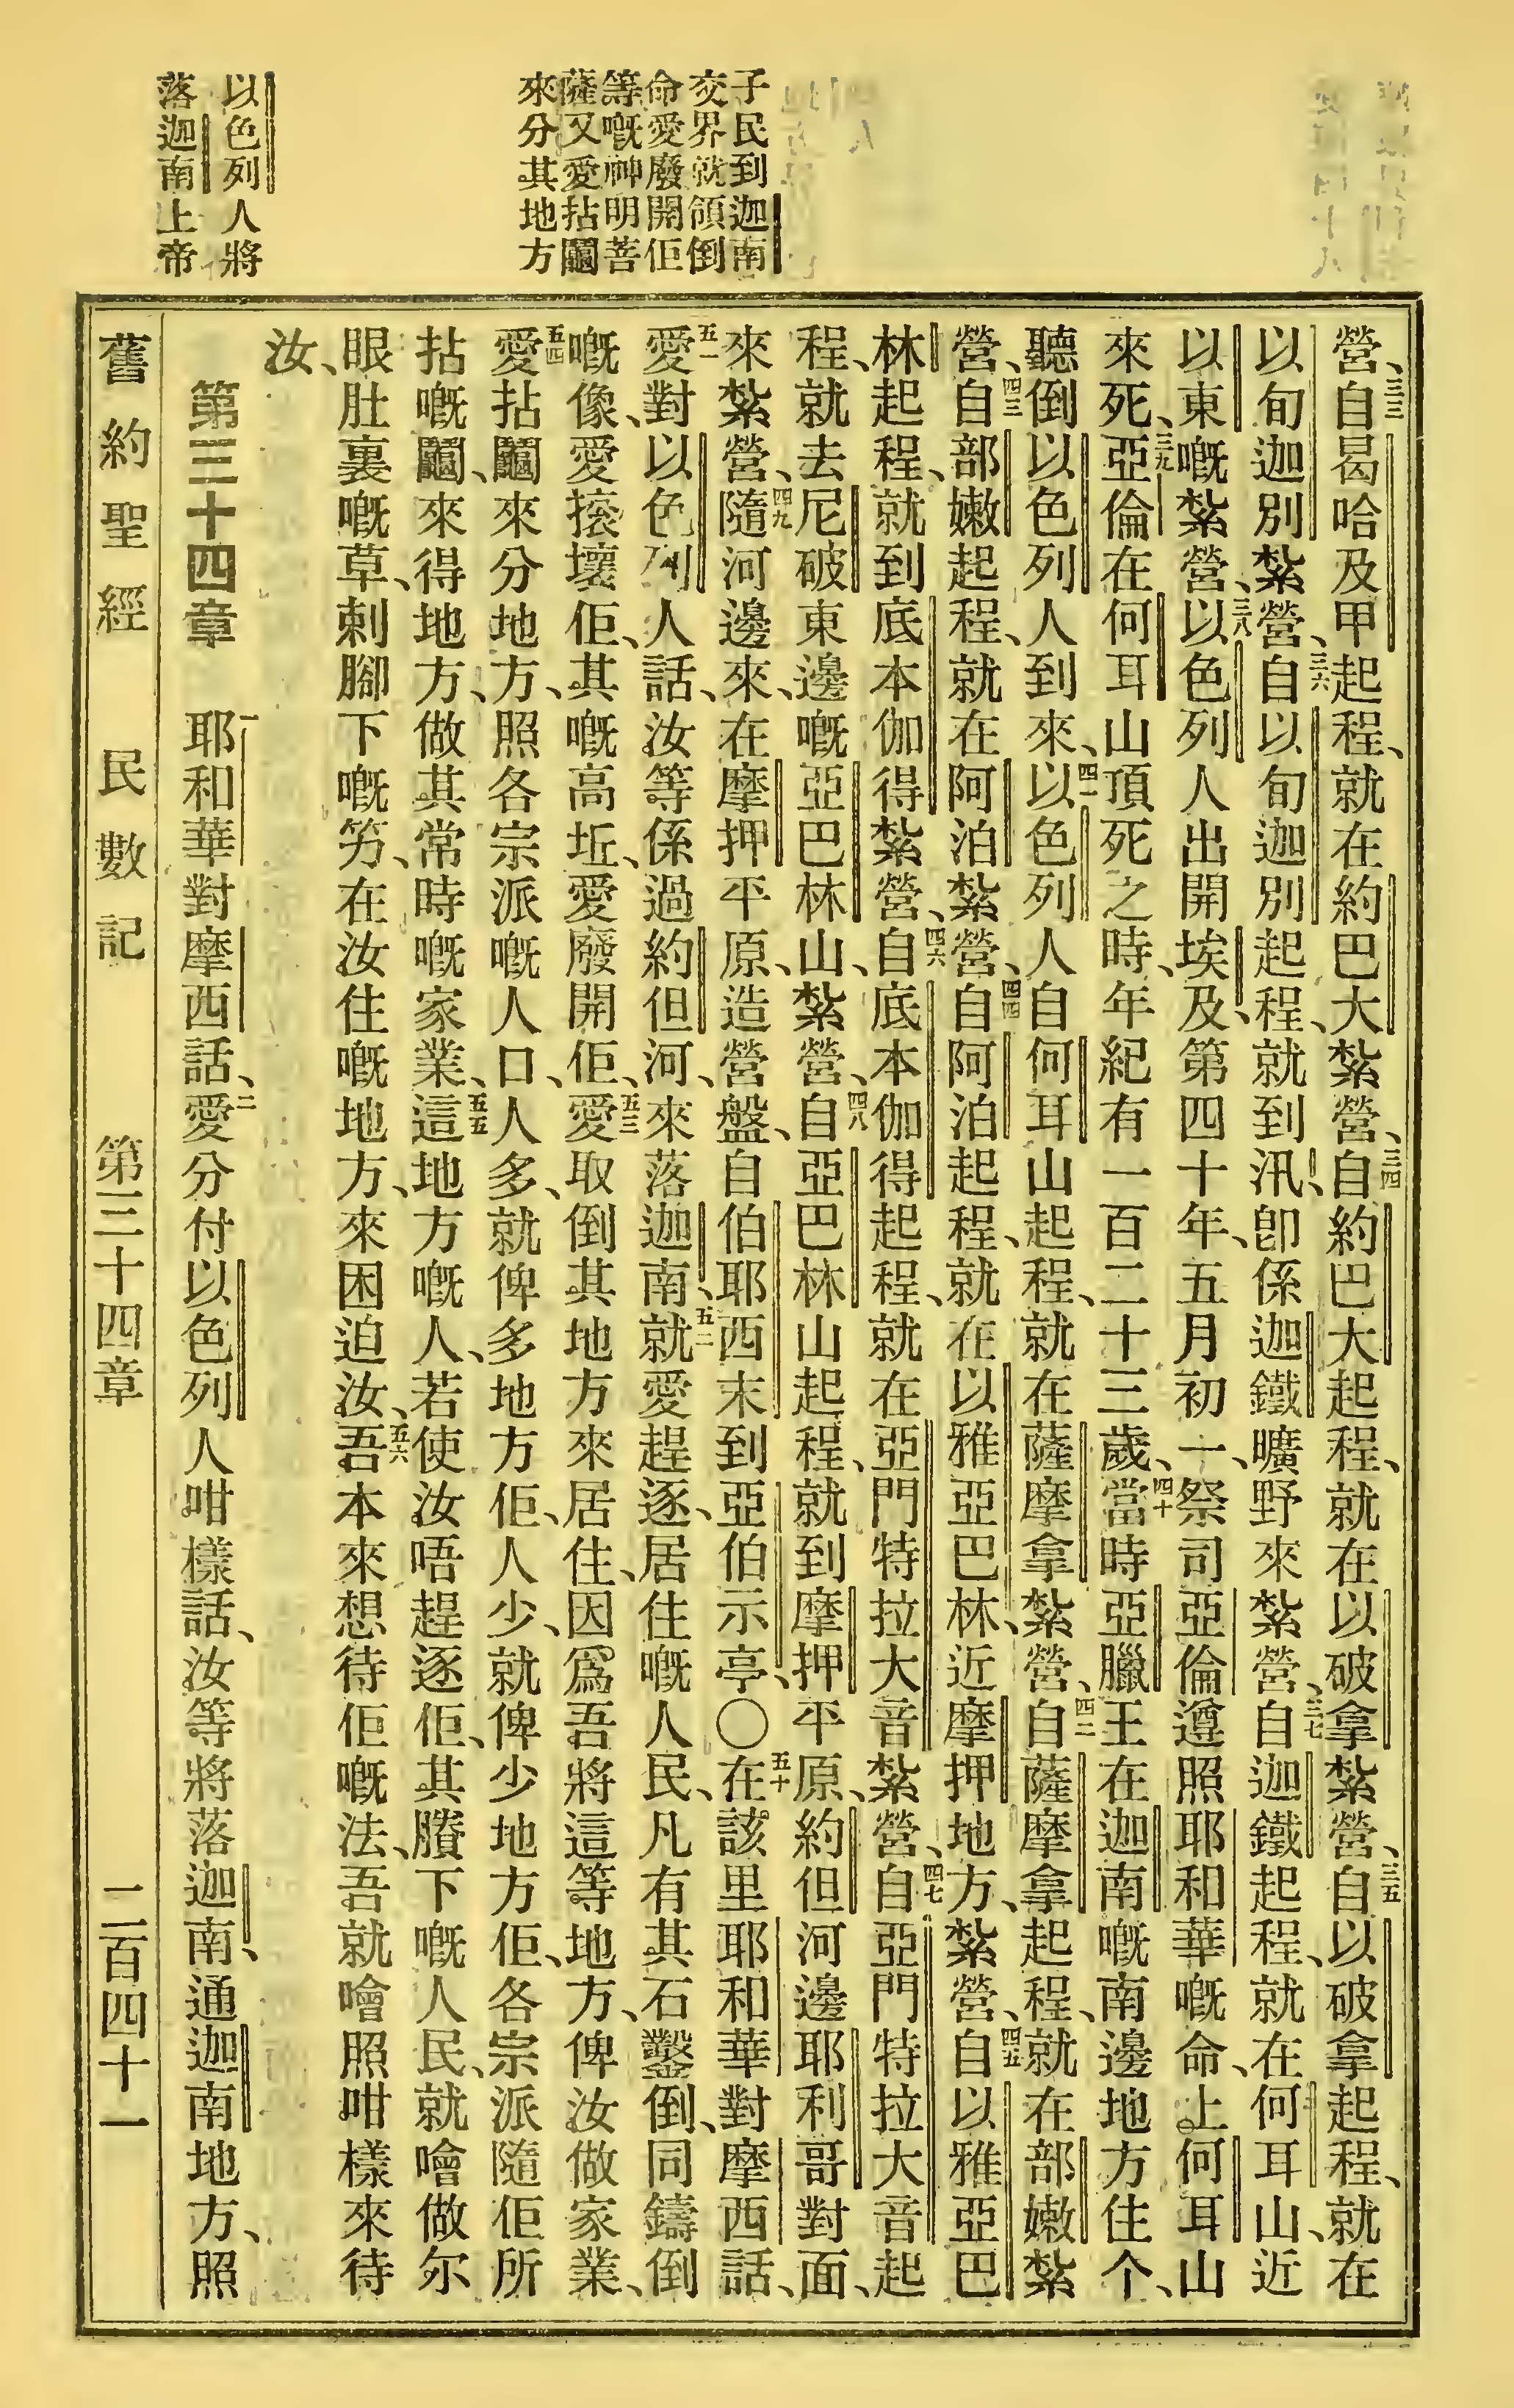 子民到迦南
交界就領倒
命愛廢開佢
等嘅神明菩
薩又愛拈鬮
來分其地方
以色列人將
落迦南上帝
營、三三自曷哈及甲起程、就在約巴大紮營、三四自約巴大起程、就在以破拿紮營、三五自以破拿起程、就在
以旬迦別紮營、三六自以旬迦別起程、就到汛、卽係迦鐵曠野來紮營、三七自迦鐵起程、就在何耳山、近
以東嘅紮營、三八以色列人出開埃及、第四十年、五月初一、祭司亞倫遵照耶和華嘅命、上何耳山
來死、三九亞倫在何耳山頂死之時、年紀有一百二十三歲、四十當時亞臘王在迦南嘅南邊地方住个、
聽倒以色列人到來、四一以色列人自何耳山起程、就在薩摩拿紮營、四二自薩摩拿起程、就在部嫩紮
營、四三自部嫩起程、就在阿泊紮營、四四自阿泊起程、就在以雅亞巴林、近摩押地方、紮營、四五自以雅亞巴
林起程、就到底本伽得紮營、四六自底本伽得起程、就在亞門特拉大音紮營、四七自亞門特拉大音起
程、就去尼破東邊嘅亞巴林山、紮營、四八自亞巴林山起程、就到摩押平原、約但河邊耶利哥對面、
來紮營、四九隨河邊來、在摩押平原、造營盤、自伯耶西末到亞伯示亭、〇五十在該里耶和華對摩西話、
五一愛對以色列人話、汝等係過約但河、來落迦南、五二就愛趕逐、居住嘅人民、凡有其石鑿倒、同鑄倒
嘅像、愛㨰壞佢、其嘅高坵、愛廢開佢、五三愛取倒其地方來居住、因爲吾將這等地方、俾汝做家業、
五四愛拈鬮來分地方、照各宗派嘅人口、人多、就俾多地方佢、人少、就俾少地方佢、各宗派隨佢所
拈嘅鬮、來得地方、做其常時嘅家業、五五這地方嘅人、若使汝唔趕逐佢、其賸下嘅人民、就噲做尔
眼肚裏嘅草、剌腳下嘅竻、在汝住嘅地方、來困迫汝、五六吾本來想待佢嘅法、吾就噲照咁樣來待
汝、
第三十四章　一耶和華對摩西話、二愛分付以色列人咁樣話、汝等將落迦南、通迦南地方、照
舊約聖經　民數記　第三十四章　二百四十一